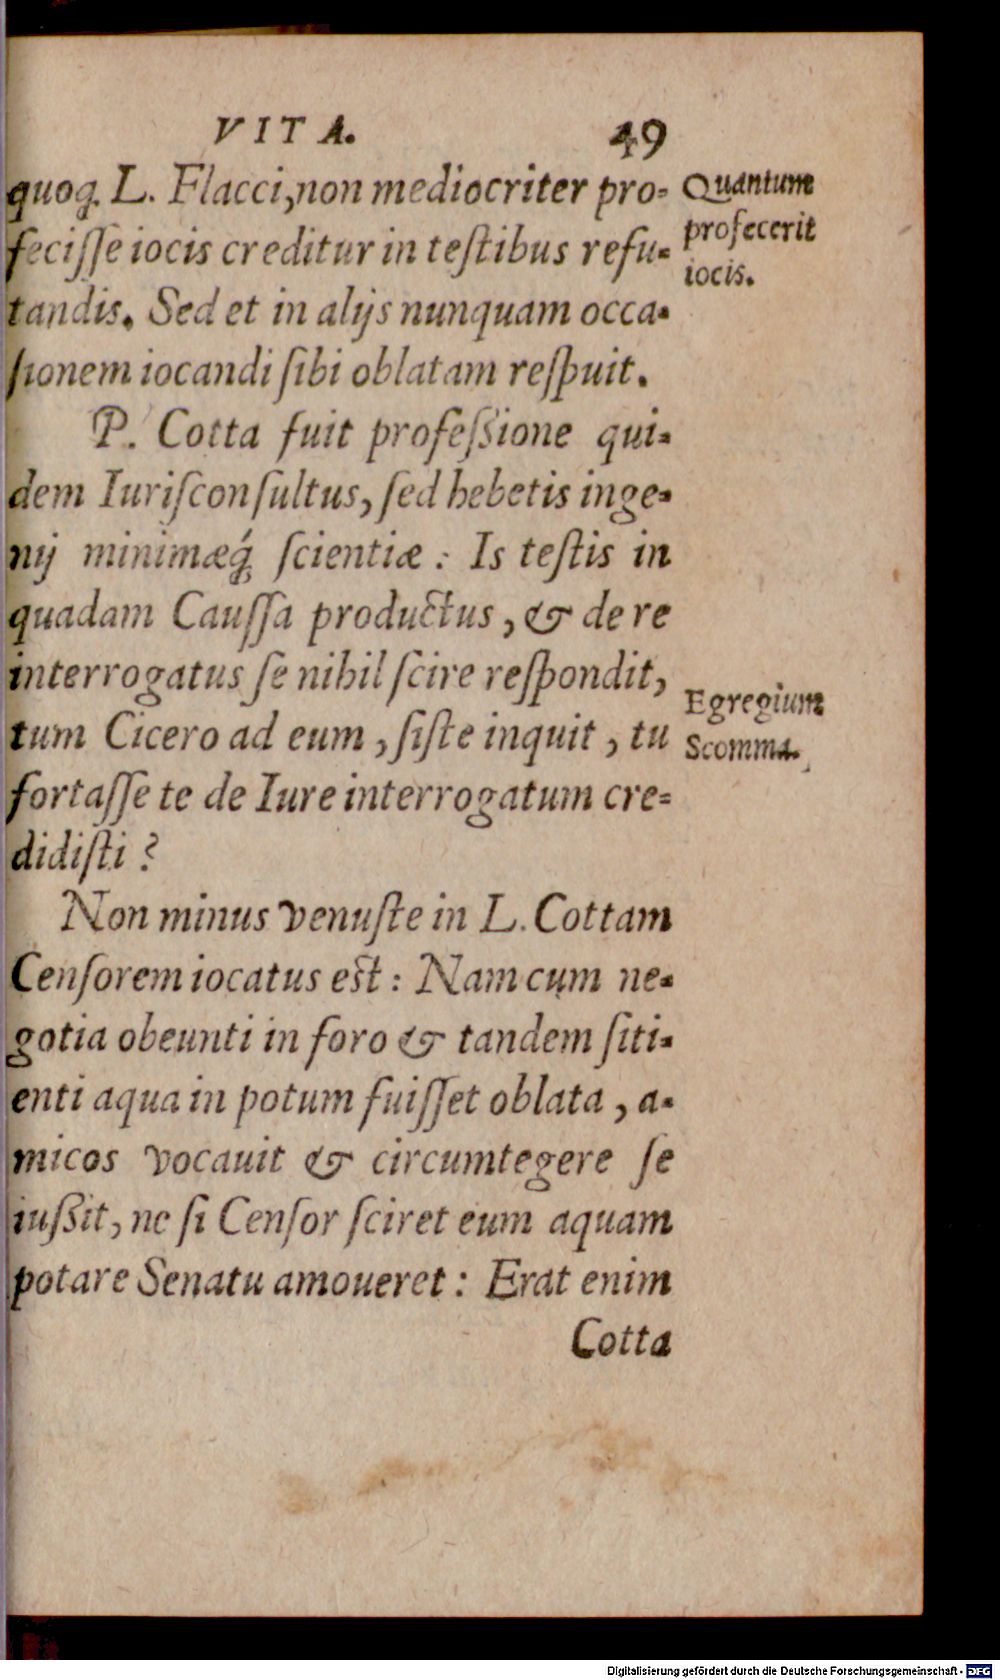 VITA. 49
quoq́. L. Flacci, non mediocriter pro-
feciſſe iocis creditur in teſtibus refu-
tandis. Sed et in alijs nunquam occa-
ſionem iocandi ſibi oblatam reſpuit.
Quantum
profecerit
iocis.
P. Cotta fuit profeſsione qui-
dem Iuriſconſultus, ſed hebetis inge-
nij minimæq́ ſcientiæ : Is teſtis in
quadam Cauſſa productus, & de re
interrogatus ſe nihil ſcire reſpondit,
tum Cicero ad eum, ſiſte inquit, tu
fortaſſe te de Iure interrogatum cre-
didiſti ?
Egregium
Scomma.
Non minus venuſte in L. Cottam
Cenſorem iocatus est : Nam cum ne-
gotia obeunti in foro & tandem ſiti-
enti aqua in potum fuiſſet oblata, a-
micos vocauit & circumtegere ſe
iuſsit, ne ſi Cenſor ſciret eum aquam
potare Senatu amoueret : Erat enim
Cotta
Digitalisierung gefördert durch die Deutsche Forschungsgemeinschaft - DFG